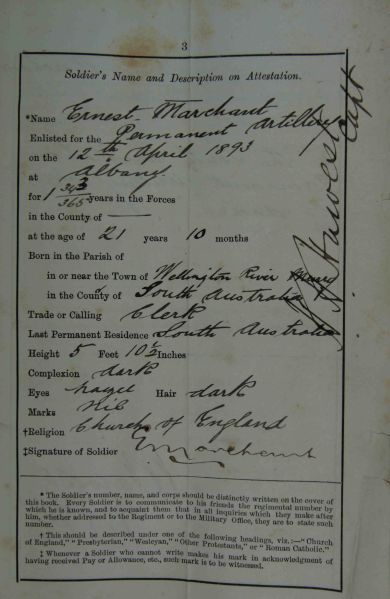 3
Soldier's Name and Description on Attestation.
*Name Ernest Marchant
Enlisted for the Permanent Artillery
on the 12th April 1893
at Albany
for 1 343/365 years in the Forces
in the County of —
at the age of 21 years 10 months
Born in the Parish of
in or near the Town of Wellington River Murray
in the County of South Australia
Trade or Calling Clerk
Last Permanent Residence South Australia
Height 5 Feet 10½ Inches
Complexion dark
Eyes hazel Hair dark
Marks Nil
†Religion Church of England
‡Signature of Soldier EMarchant
Capt
* The Soldier's number, name, and corps should be distinctly written on the cover of
this book. Every Soldier is to communicate to his friends the regimental number by
which he is known, and to acquaint them that in all inquiries which they make after
him, whether addressed to the Regiment or to the Military Office, they are to state such
number.
† This should be described under one of the following headings, viz.:—"Church
of England," "Presbyterian," "Wesleyan," "Other Protestants," or "Roman Catholic."
‡ Whenever a Soldier who cannot write makes his mark in acknowledgment of
having received Pay or Allowance, etc., such mark is to be witnessed.